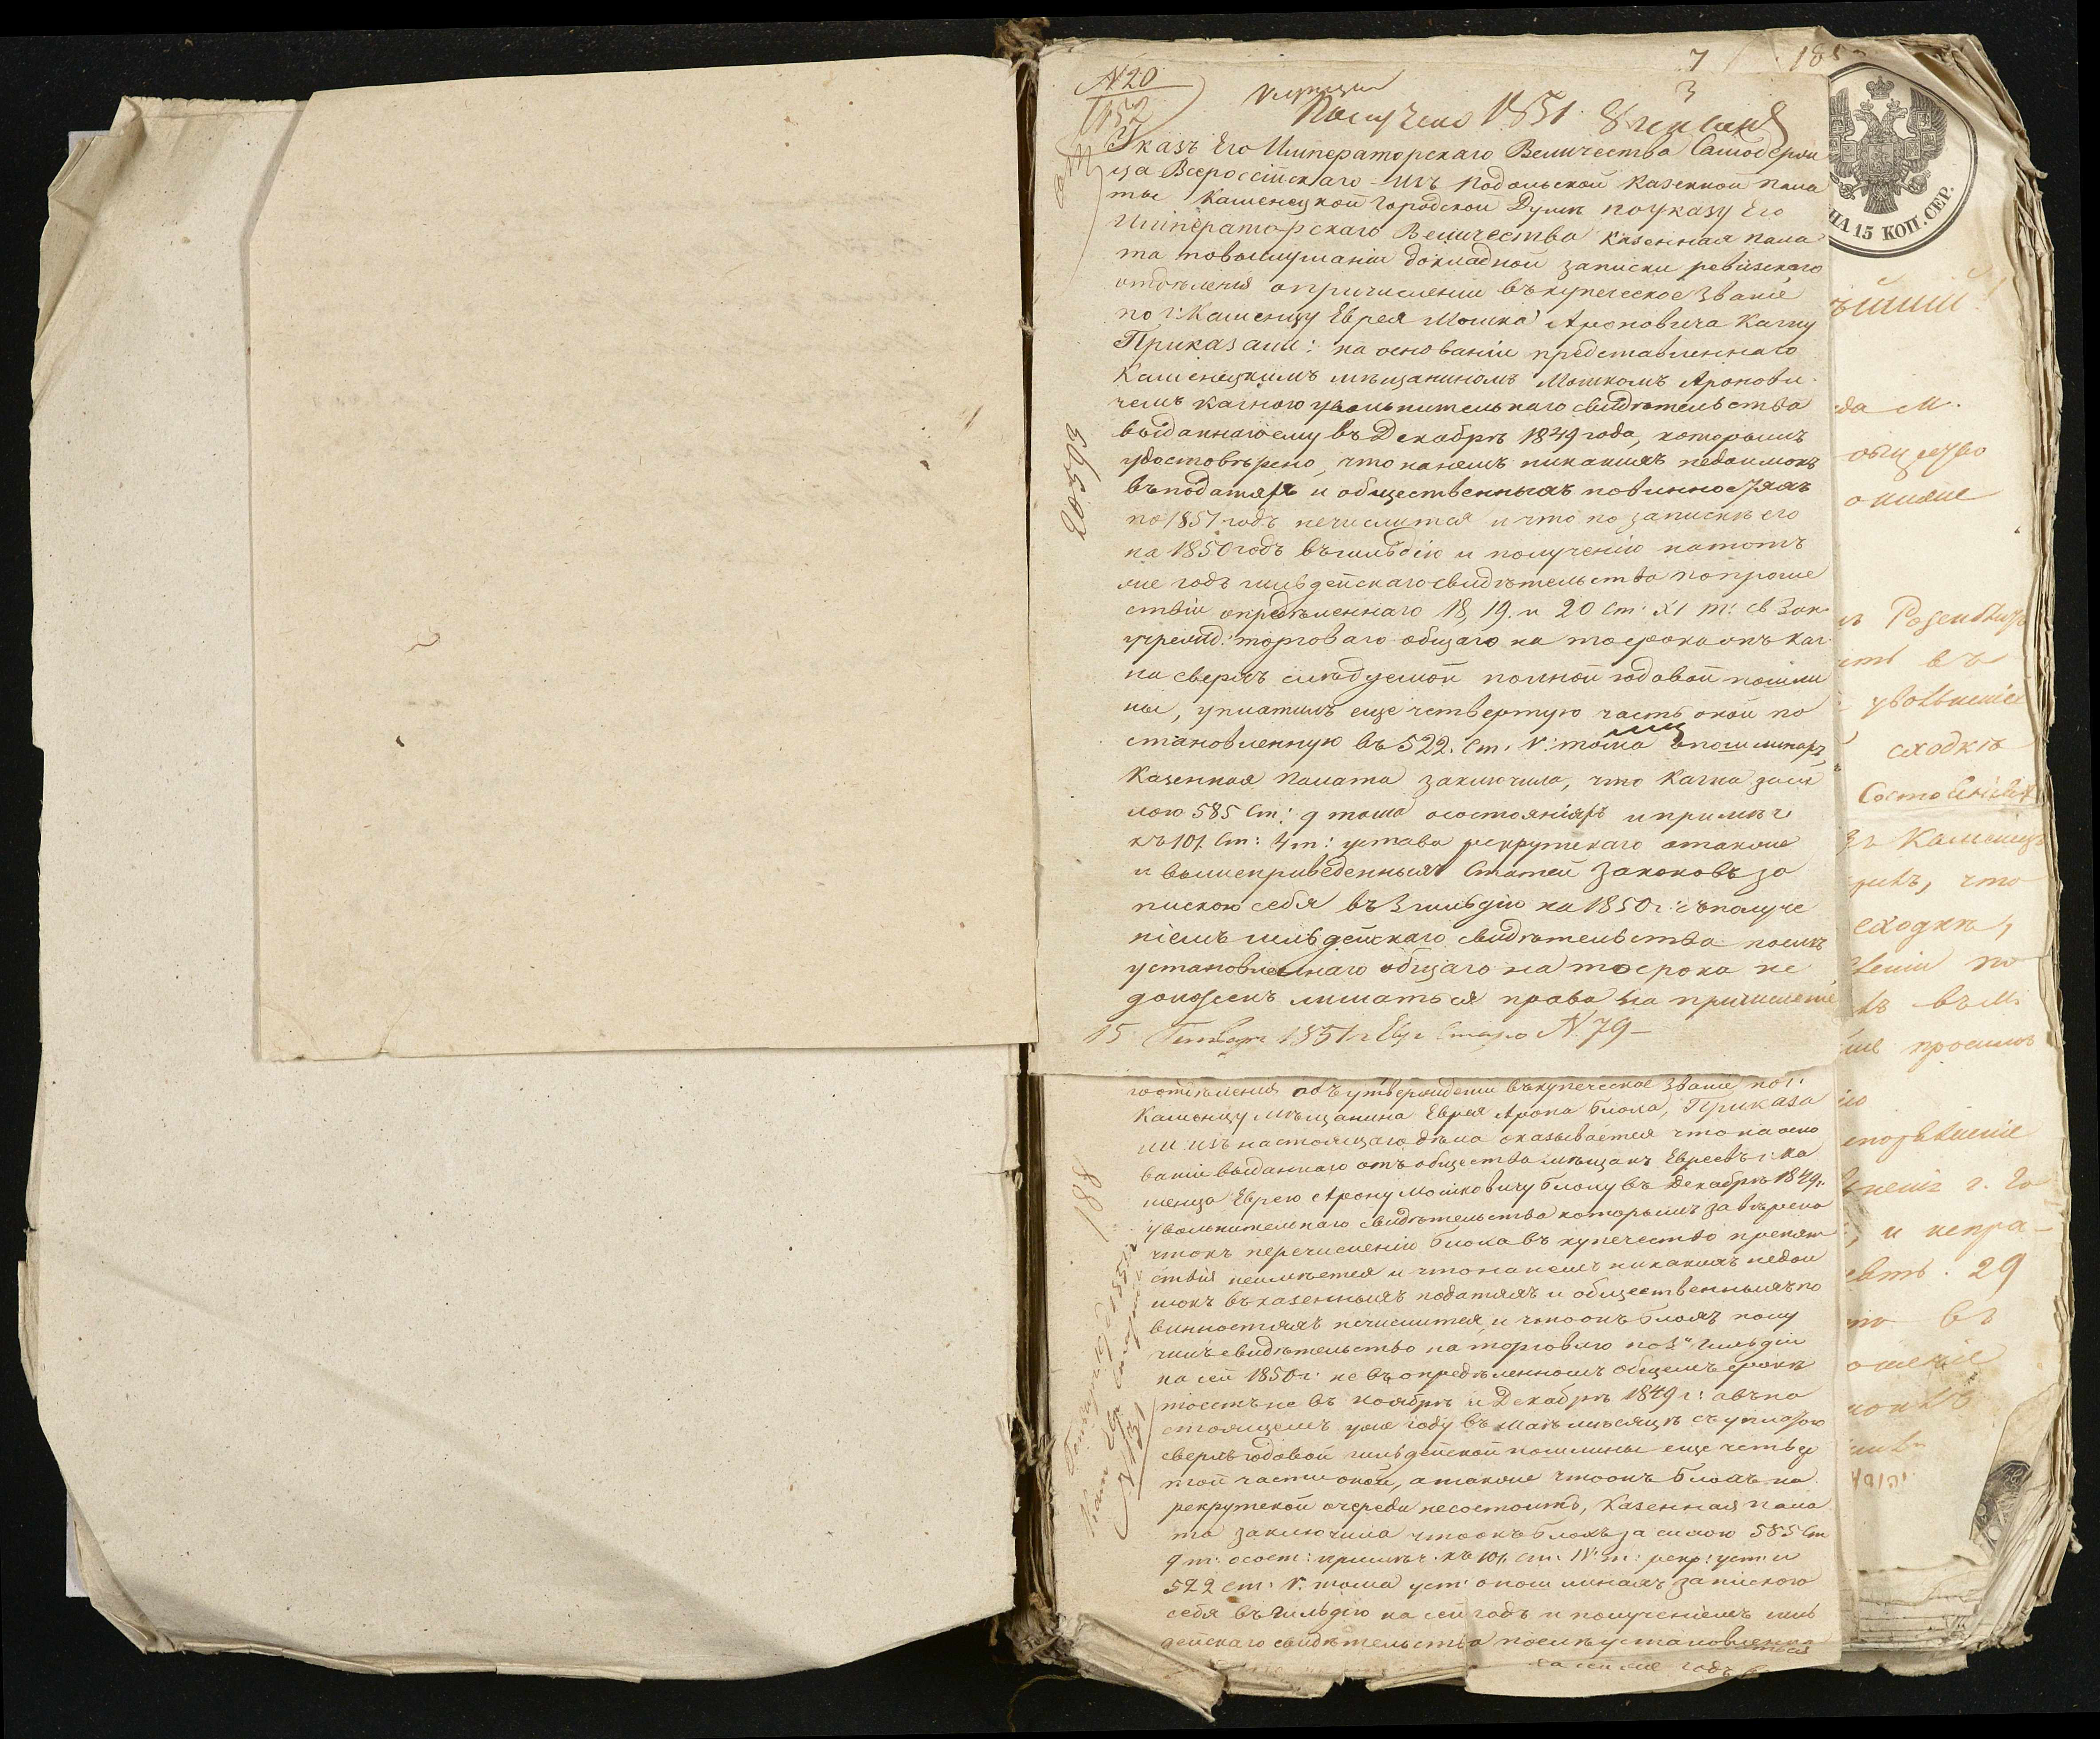 7
185
3
№ 20
Получено 1851
Указъ Его Императорскаго Величества Самодерж
ца Всероссійскаго изъ Подольской Казенной Пала
ты Каменецкой Городской Думѣ по указу Его
Императорскаго Величества Казенная Пала
та по выслушаніи докладной записки ревизскаго
отдѣленія о причисленіи въ купеческое званіе
по г: Каменцу Еврея Мошка Ароновича Качку
Приказали: на основаніи представленнаго
Каменецкимъ мѣщаниномъ Мошкомъ Аронови
чемъ Качкою увольнительнаго свидѣтельства
выданнаго ему въ Декабрѣ 1849 года, которымъ
удостовѣрено, что на немъ никакихъ недоимокъ
въ податяхъ и общественныхъ повинностяхъ
по 1851 годъ не числится и что по запискѣ его
на 1850 годъ въ гильдію и полученію на тотъ
же годъ гильдейскаго свидѣтельства по проше
ствіи опредѣленнаго 18, 19. и 20 Ст: XI т: Св Зак.
учрежд: торговаго общаго на то срока онъ Кач
ка сверхъ слѣдуемой полной годовой пошли
ны, уплатилъ еще четвертую часть оной по
становленную въ 522. Ст. V: тома о пошлинахъ,
Казенная Палата заключила, что Качка за си
лою 585 Ст: 9 тома о состояніяхъ и примѣч
къ 101 Ст: 4 т: устава рекрутскаго а также
и вышеприведенныхъ Статей Законовъ за
пискою себя въ 3 гильдію на 1850 г: съ получе
ніемъ гильдейскаго свидѣтельства послѣ
установленнаго общаго на то срока не
долженъ лишаться права на причисленіе
15 Генваря 1851 г Евр Стар № 79 –
го отдѣленія объ утвержденіи въ купеческое званіе по г:
Каменцу мѣщанина Еврея Арона Блоха, Приказа
ли изъ настоящаго дѣла оказывается что на осно
ваніи выданнаго отъ общества мѣщанъ Евреевъ г: Ка
менца Еврею Арону Мошковичу Блоху въ Декабрѣ 1849 г.
увольнительнаго свидѣтельства которымъ завѣрено
что къ перечисленію Блоха въ купечество препят
ствія не имѣется и что на немъ никакихъ недои
мокъ въ казенныхъ податяхъ и общественныхъ по
винностяхъ не числится, и что онъ Блохъ полу
чилъ свидѣтельство на торговлю по 3й гильдіи
на сей 1850 г: не въ опредѣленномъ общемъ срокѣ
то есть не въ Ноябрѣ и Декабрѣ 1849 г: а въ на
стоящемъ уже году въ Маѣ мѣсяцѣ съ уплатою
сверхъ годовой гильдейской пошлины еще четвер
той части оной, а также что онъ Блохъ на
рекрутской очереди не состоитъ, Казенная Пала
та заключила что онъ Блохъ за силою 585 Ст
9 т: о сост: примѣч. къ 101. Ст. IV т: рекр: уст: и
522 ст: V. тома уст: о пошлинахъ запискою
себя въ гильдію на сей годъ и полученіемъ гиль
дейскаго свидѣтельства послѣ установленна
на сей же годъ
188
№ 131
ЦѢНА 15 КОП. СЕР.
да М.
общество
сть въ
сходкѣ
Каменецъ
что
сходки,
просимъ
и непра-
29
въ